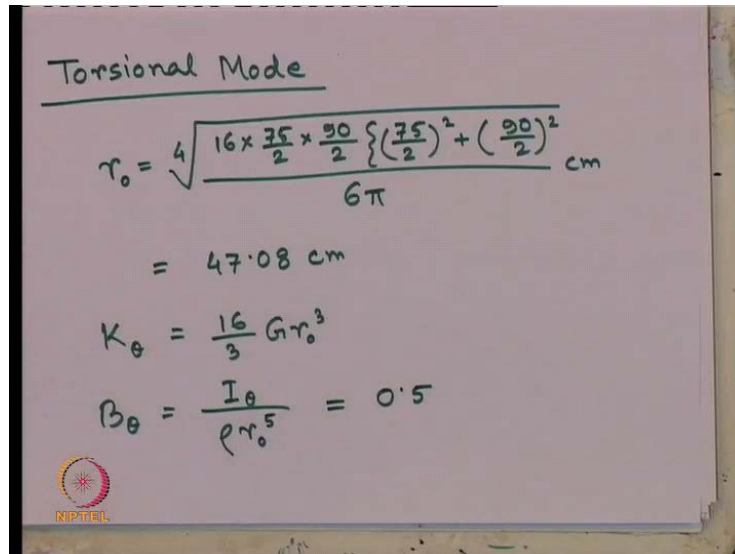 Torsional Mode
r₀ = ⁴√(16 × 75/2 × 90/2 {(75/2)² + (90/2)² / 6π) cm
= 47.08 cm
K_θ = 16/3 G r₀³
B_θ = I_θ / ρ r₀⁵ = 0.5
NPTEL